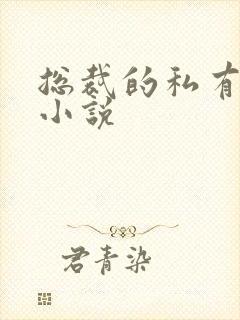 总裁的私有
小说
君青染